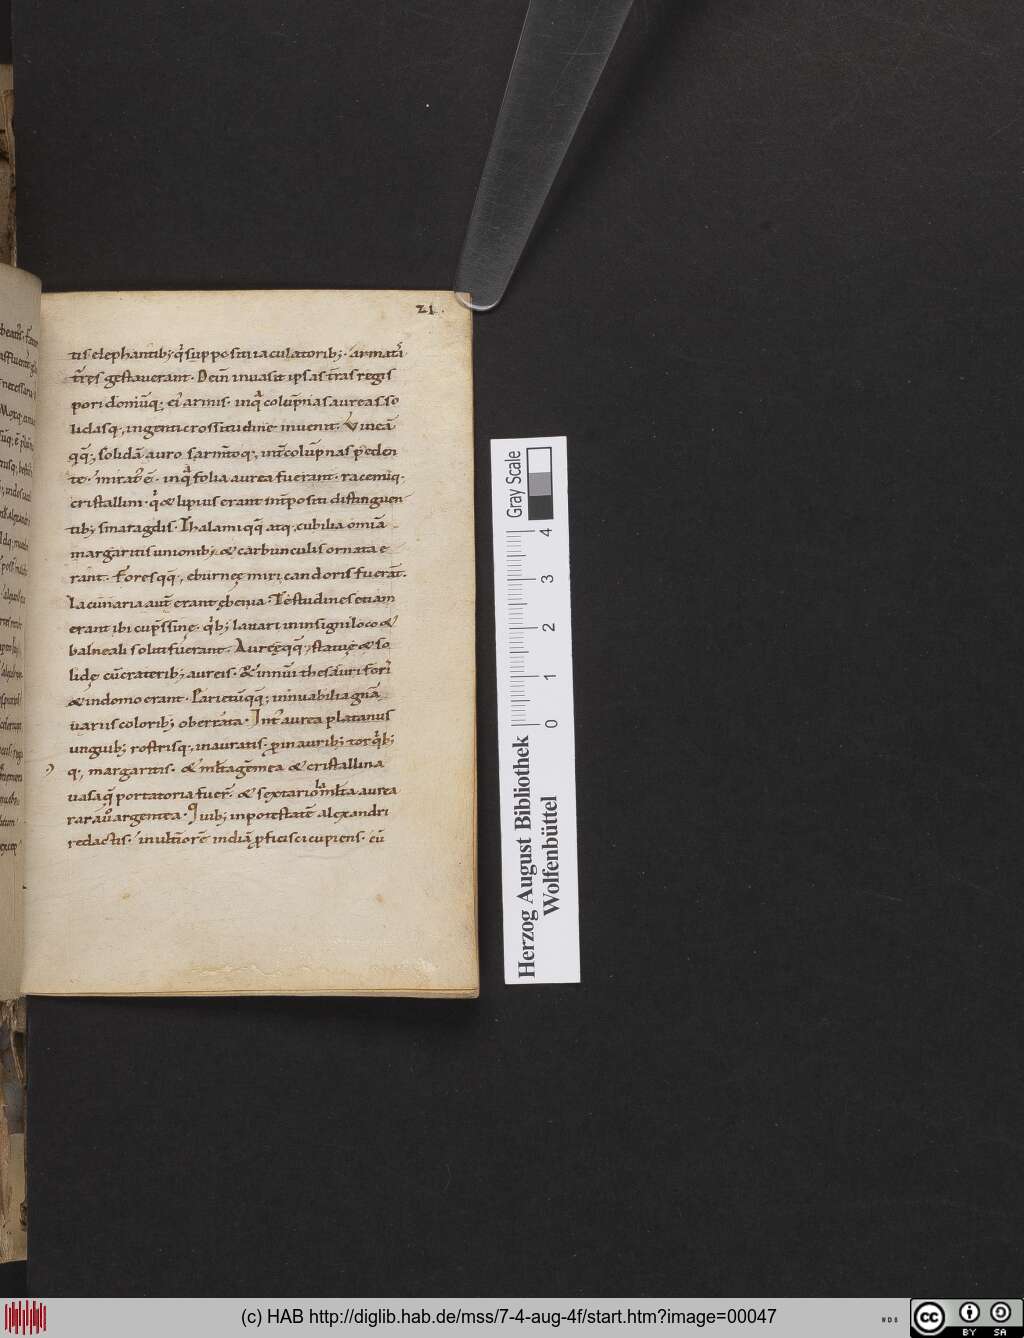 21.
tis elephantib; q̇ suppositi iaculatorib; armati
tr̄es gestauerant. Dein̄ inuasit ipsas tr̄as regis
pori domūq; ei' armis. inq̇ colūpnas aureas so
lidasq; ingenti crossitudine inuenit. Vineā
qq̄; solidā auro sarmtoq; int̄ colūpnas p̄eden
te. mirat' ē. inq̇ folia aurea fuerant. racemiq;
cristallini. q̇ & lipius erant int̄positi distinguen
tib; smaragdis. Thalami qq̄ atq; cubilia om̄ia
margaritis unionib; & carbunculis ornata e
rant. Fores qq̄; eburneę miri candoris fuerāt.
Lacunaria aut̄ erant ębenia. Testudines etiam
erant ibi cup̄ssine. q̇b; lauari in insigni loco &
balneali soliti fuerant. Aureę qq̄; statuę & so
lidę cū craterib; aureis. & innūi thesauri fori
& in domo erant. Parietūqq̄; innūabilia gnā
uariis colorib; oberrata. Int' aurea platanus
unguib; rostrisq; inauratis. p̄ in aurib; torq̇b;
q; margaritis. & mlta gēmea & cristallina
uasa q̄ portatoria fuer̄. & sextariola mlta aurea
rara u̇ argentea. Quib; in potestatē alexandri
redactis. in ult̄iorē indiā p̄ficisci cupiens. cū
Gray Scale
0 1 2 3 4
Herzog August Bibliothek
Wolfenbüttel
(c) HAB http://diglib.hab.de/mss/7-4-aug-4f/start.htm?image=00047
WDB
cc BY SA